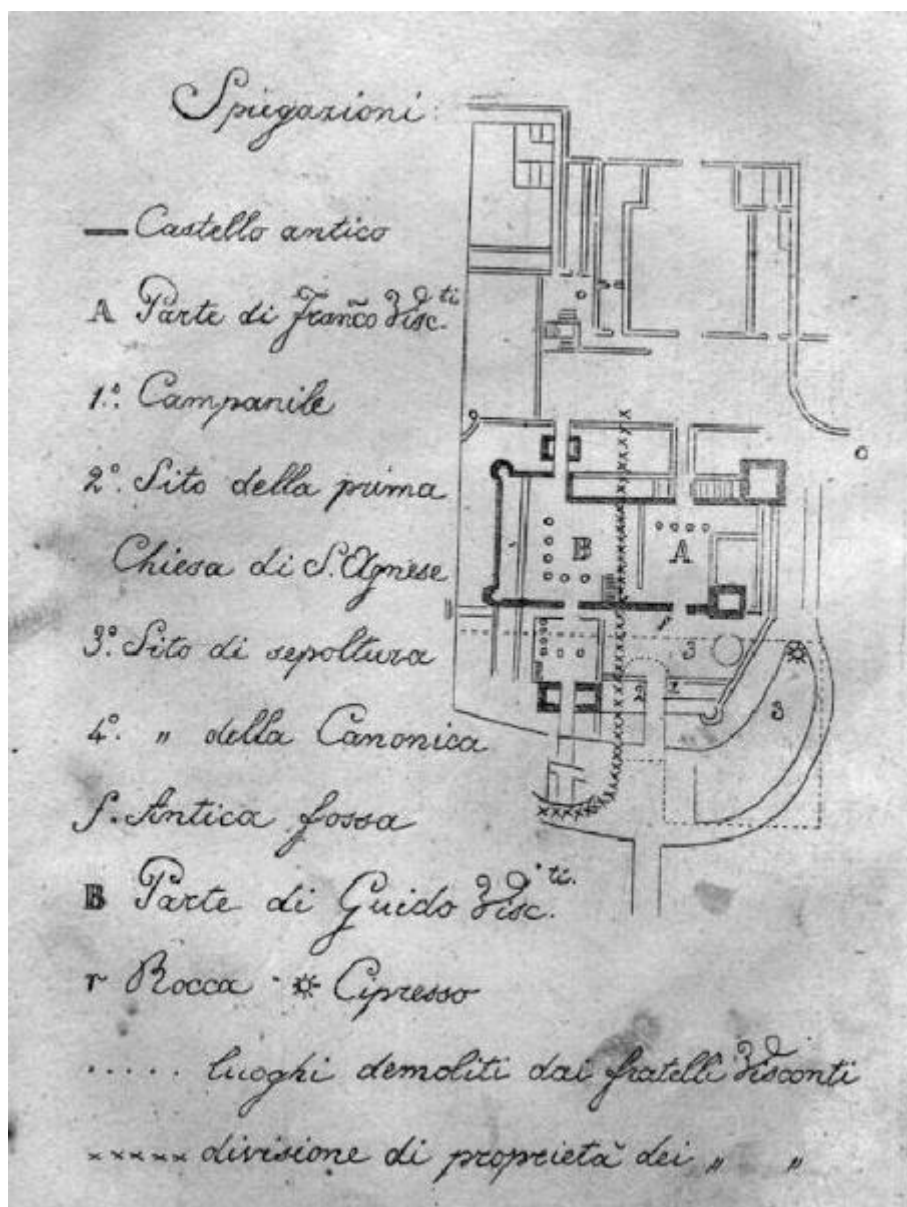 Spiegazioni:
Castello antico
A Parte di Franco Visc.ti
1.º Campanile
2.º Sito della prima
Chiesa di S. Agnese
3.º Sito di sepoltura
4.º " della Canonica
5. Antica fossa
B Parte di Guido Visc.ti
r Rocca ☼ Cipresso
..... luoghi demoliti dai fratelli Visconti
xxxxx divisione di proprietà dei " "
B A
3
3